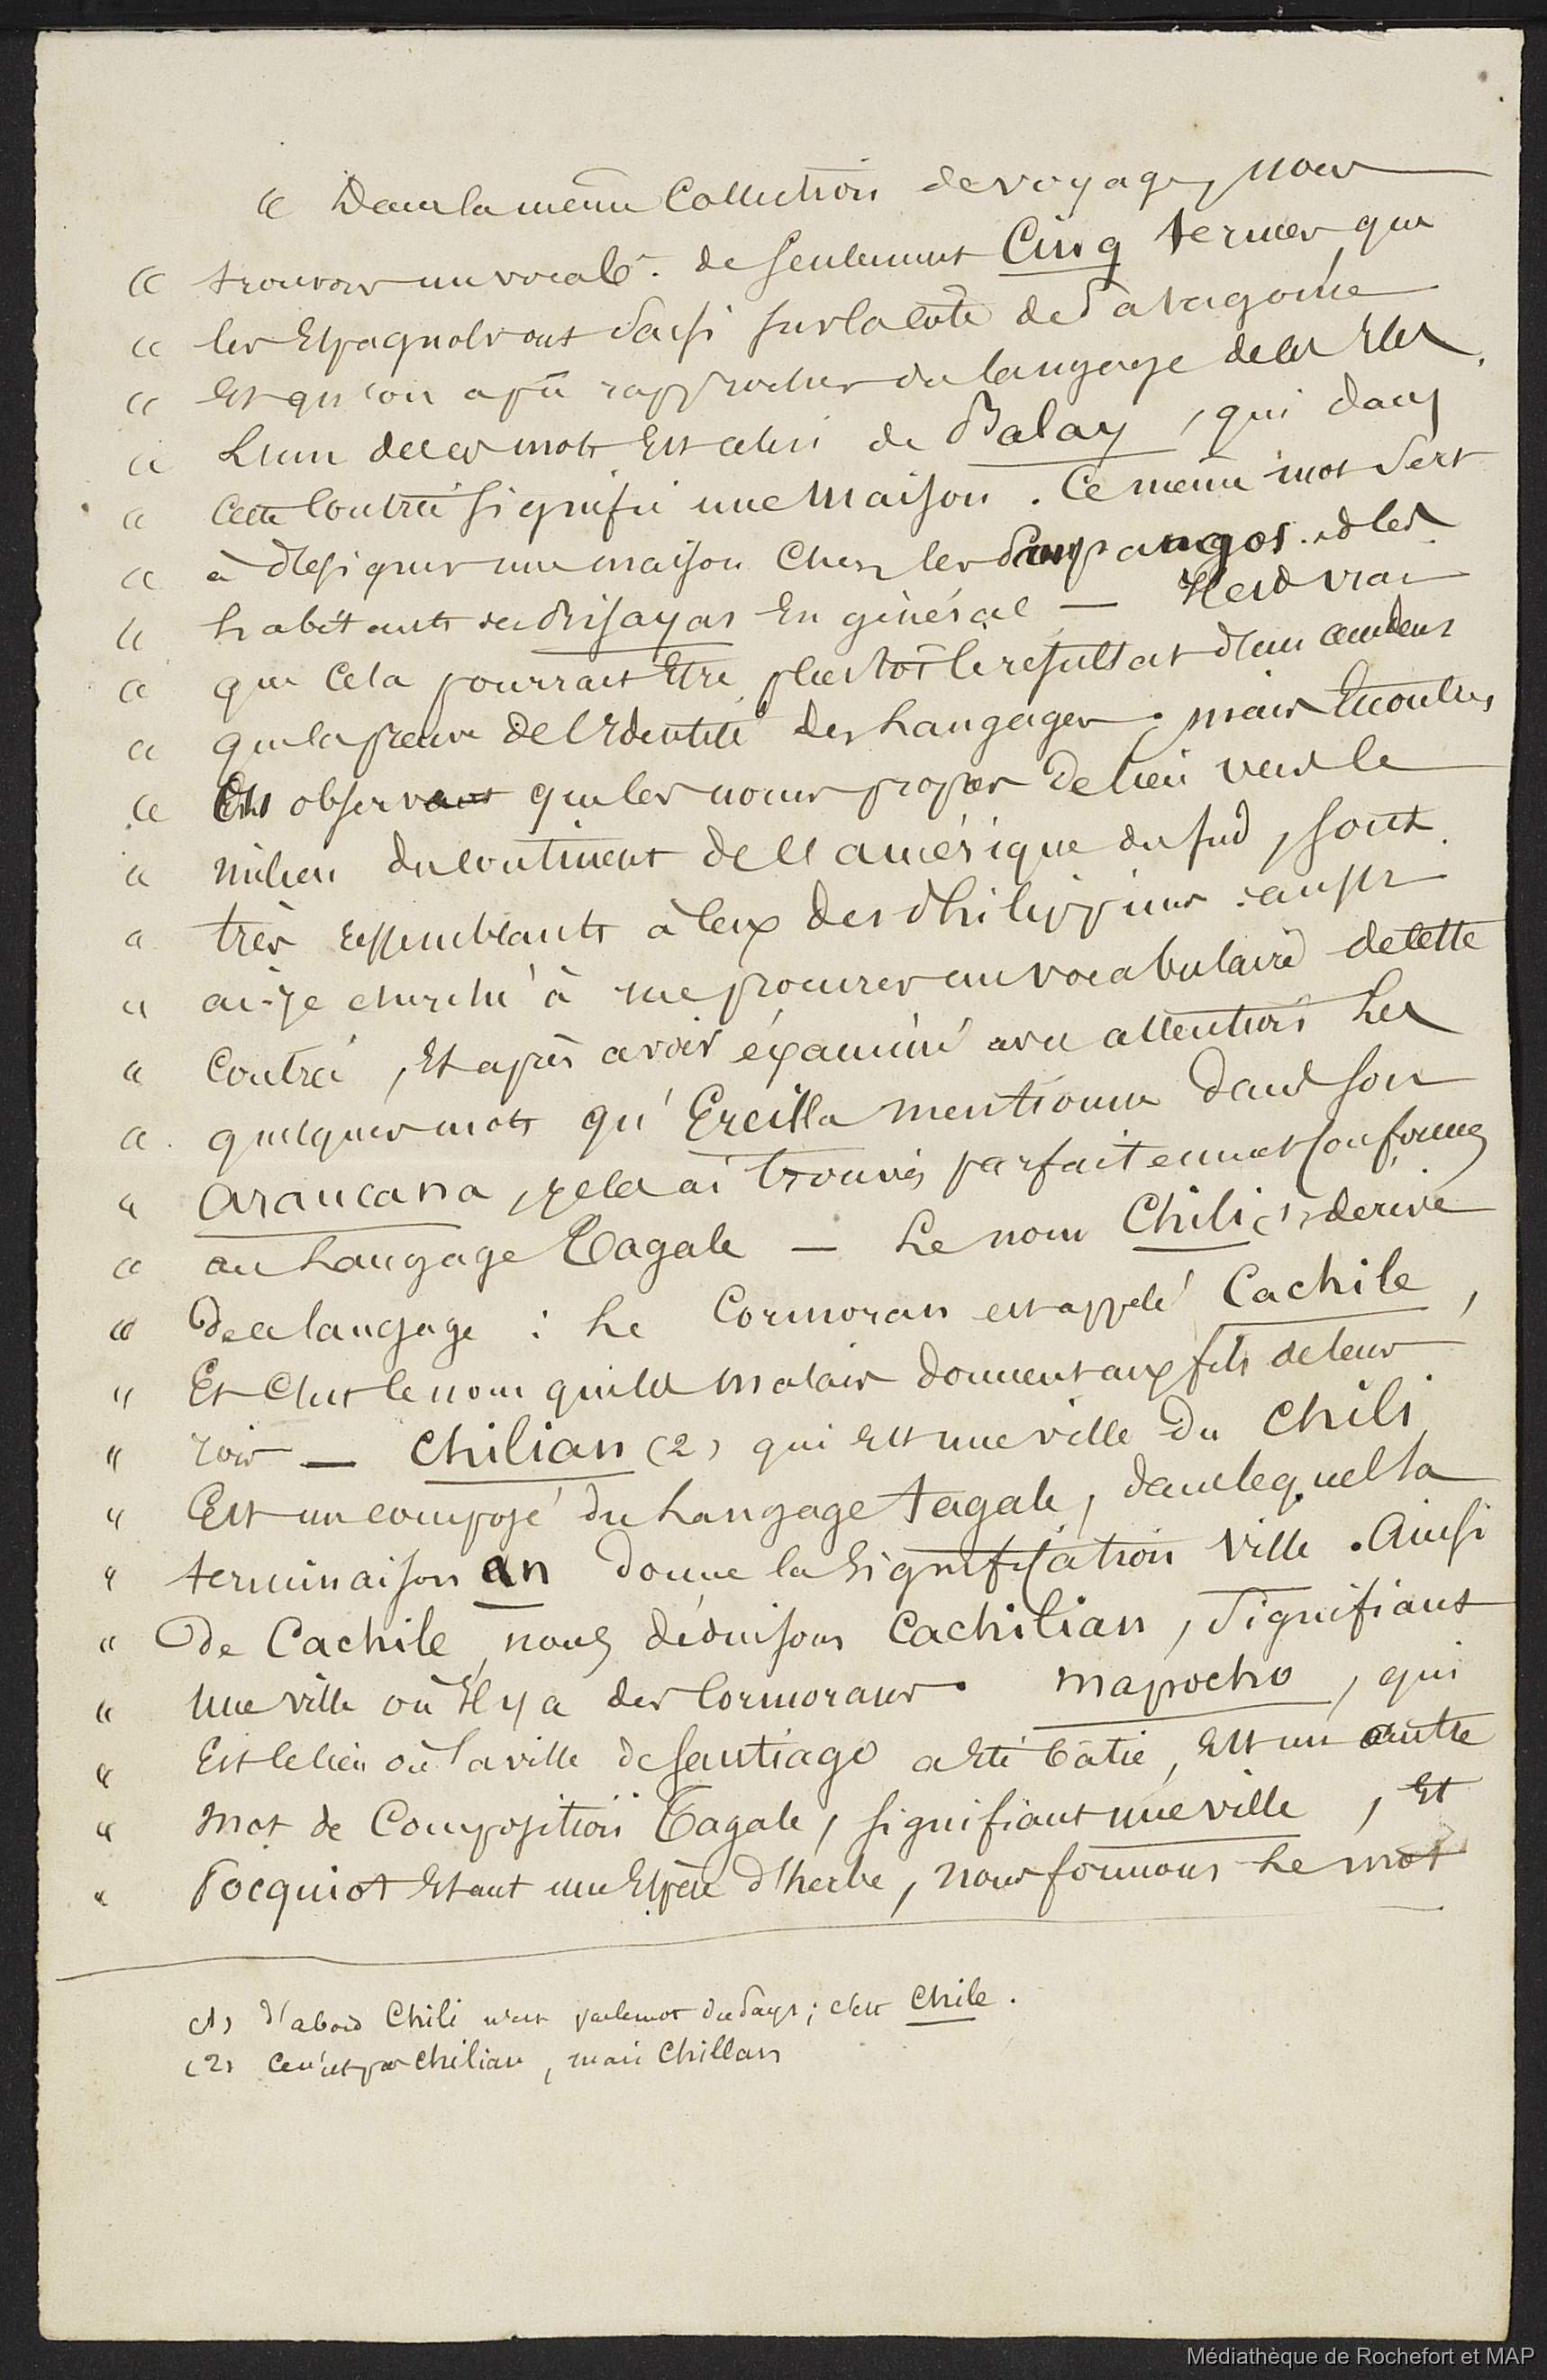 « Dans la même Collection de voyages, nous
« trouvons un vocab.re de seulement Cinq termes que
« les Espagnols ont saisi sur la côte de Patagonie
« et qu'on a pû rapprocher du langage de ces Iles.
« L'un de ces mots est celui de Balay, qui dans
« Cette Contrée signifie une Maison. Ce même mot sert
« à désigner une maison Chez les Pampangos et les
« habitants des Bisayas En général — Il est vrai
« que Cela pourrait Etre plustôt le résultat d'un accident
« que la preuve de l'Identité des Langages; mais Ecoutés
« observant que les noms propres de lieu vers le
« milieu du continent de l'amérique du sud, sont
« très ressemblants à Ceux des Philippines. aussi
« ai-je cherché à me procurer un vocabulaire de Cette
« Contrée, Et après avoir éxaminé avec attention Les
« quelques mots qu'Ercilla mentionne dans son
« Araucana, je les ai trouvés parfaitement Conformes
« au Langage Tagale — Le nom Chili (1) dérive
« De ce langage : Le Cormoran est appelé Cachile,
« Et C'est le nom que les Malais donnent aux fils de leurs
« rois — Chilian (2) qui Est une ville du Chili
« Est un composé du Langage tagale, dans lequel la
« terminaison an donne la Signification Ville. Ainsi
« De Cachile, nous déduisons Cachilian, signifiant
« une ville où Il y a des Cormorans. Mapocho, qui
« Est le lieu où la ville de Santiago a Eté bâtie, Est un autre
« Mot de Composition Tagale, signifiant une ville, Et
« Pocquiot Etant une Espèce d'herbe, nous formons Le mot
(1) d'abord Chili n'est pas le mot du Pays; c'est Chile.
(2) Ce n'est pas Chilian, mais Chillan
Médiathèque de Rochefort et MAP